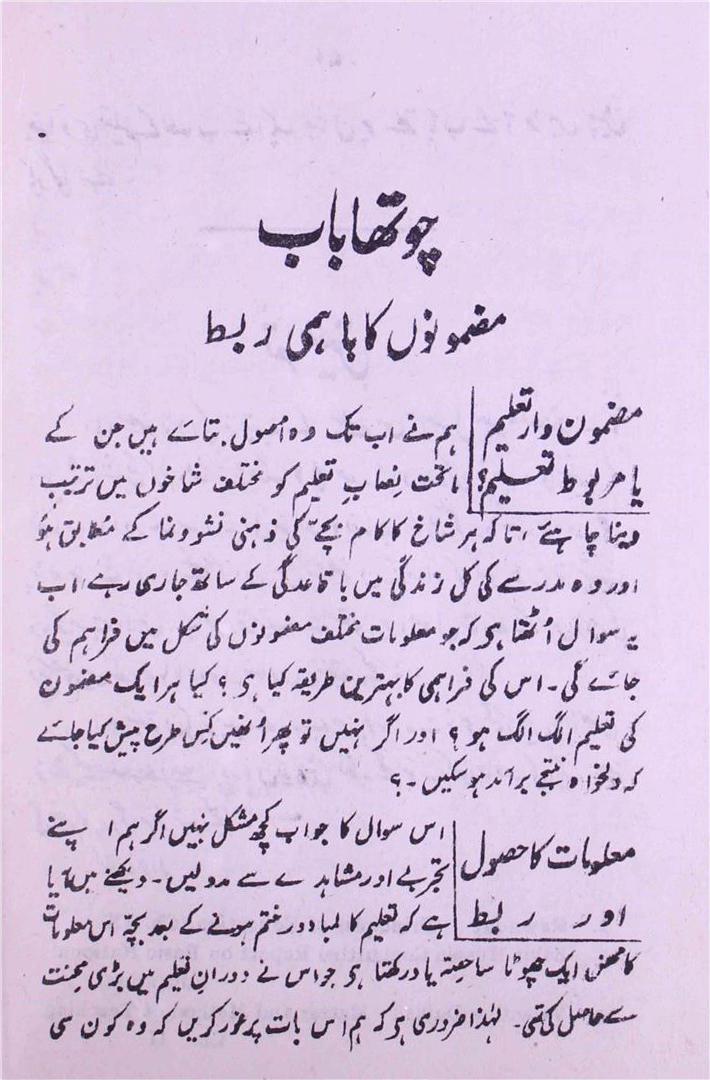 چوتھا باب
مضمونوں کا باہمی ربط
مضمون وار تعلیم
یا مربوط تعلیم؟
ہم نے اب تک وہ اصول بتائے ہیں جن کے
ماتحت نصابِ تعلیم کو مختلف شاخوں میں ترتیب
دینا چاہئے، تاکہ ہر شاخ کا کام بچّے کی ذہنی نشوونما کے مطابق ہو
اور وہ مدرسے کی کل زندگی میں باقاعدگی کے ساتھ جاری رہے اب
یہ سوال اُٹھتا ہے کہ جو معلومات مختلف مضمونوں کی شکل میں فراہم کی
جائے گی۔ اس کی فراہمی کا بہترین طریقہ کیا ہے؟ کیا ہر ایک مضمون
کی تعلیم الگ الگ ہو؟ اور اگر نہیں تو پھر اُنھیں کِس طرح پیش کیا جائے
کہ دلخواہ نتیجے برآمد ہو سکیں۔؟
معلومات کا حصول
اور ربط
اس سوال کا جواب کچھ مشکل نہیں اگر ہم اپنے
تجربے اور مشاہدے سے مدد لیں۔ دیکھنے میں آیا
ہے کہ تعلیم کا لمبا دور ختم ہونے کے بعد بچّہ اس معلومات
کا محض ایک چھوٹا سا حصّہ یاد رکھتا ہے جو اس نے دورانِ تعلیم میں بڑی محنت
سے حاصل کی تھی۔ لہٰذا ضروری ہے کہ ہم اس بات پر غور کریں کہ وہ کون سی